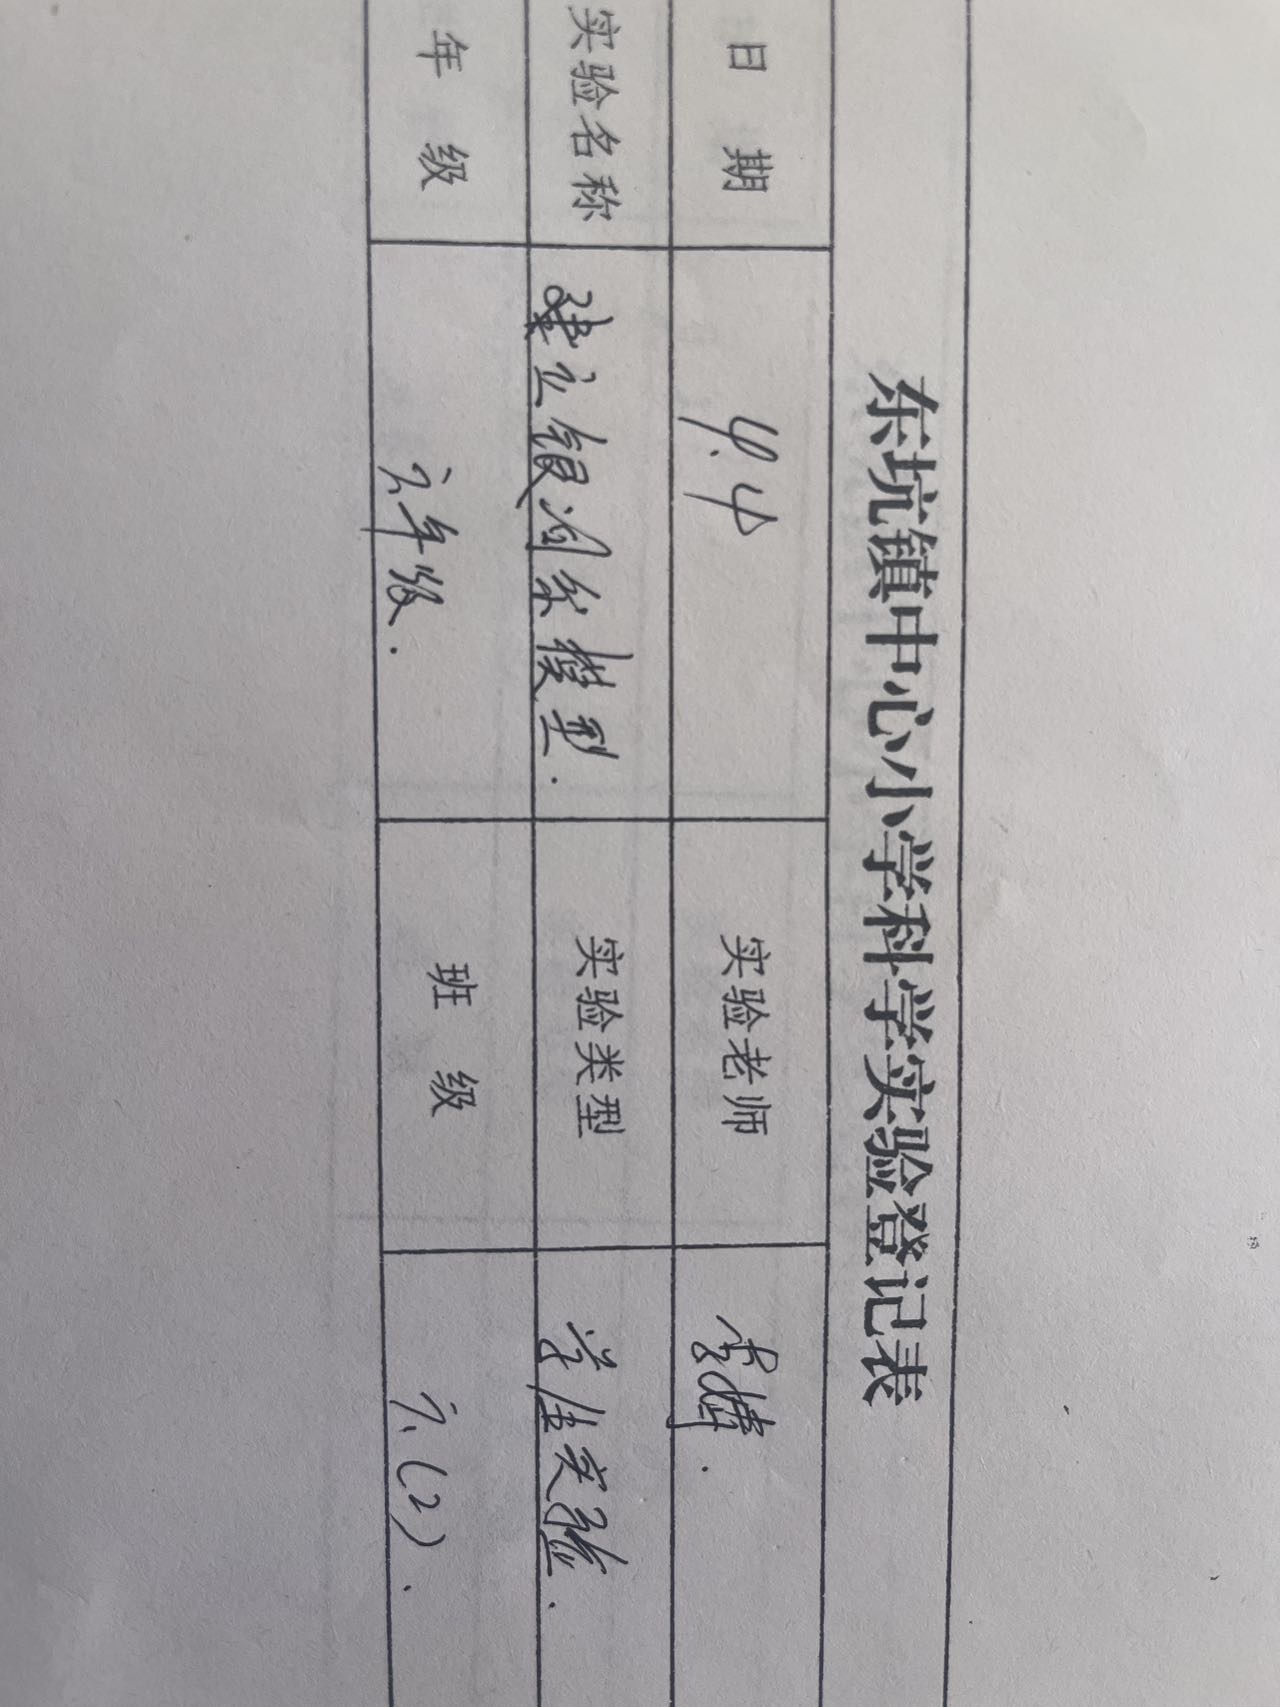 东坑镇中心小学科学实验登记表
日 期 4.4 实验老师
实验名称 建立银河系模型. 实验类型 学生实验.
年 级 六年级. 班 级 六(2).